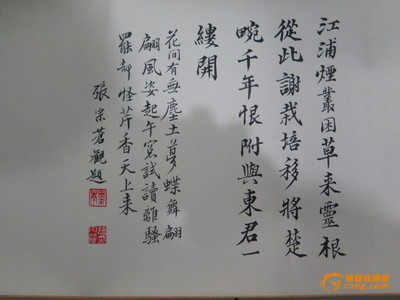 江浦煙叢困草來靈根
從此謝栽培移將楚
畹千年恨附與東君一
縷開
花間有無塵土夢蝶舞翩
翩風姿起午窗試讀離騷
罷却怪芹香天上來
張宗蒼觀題